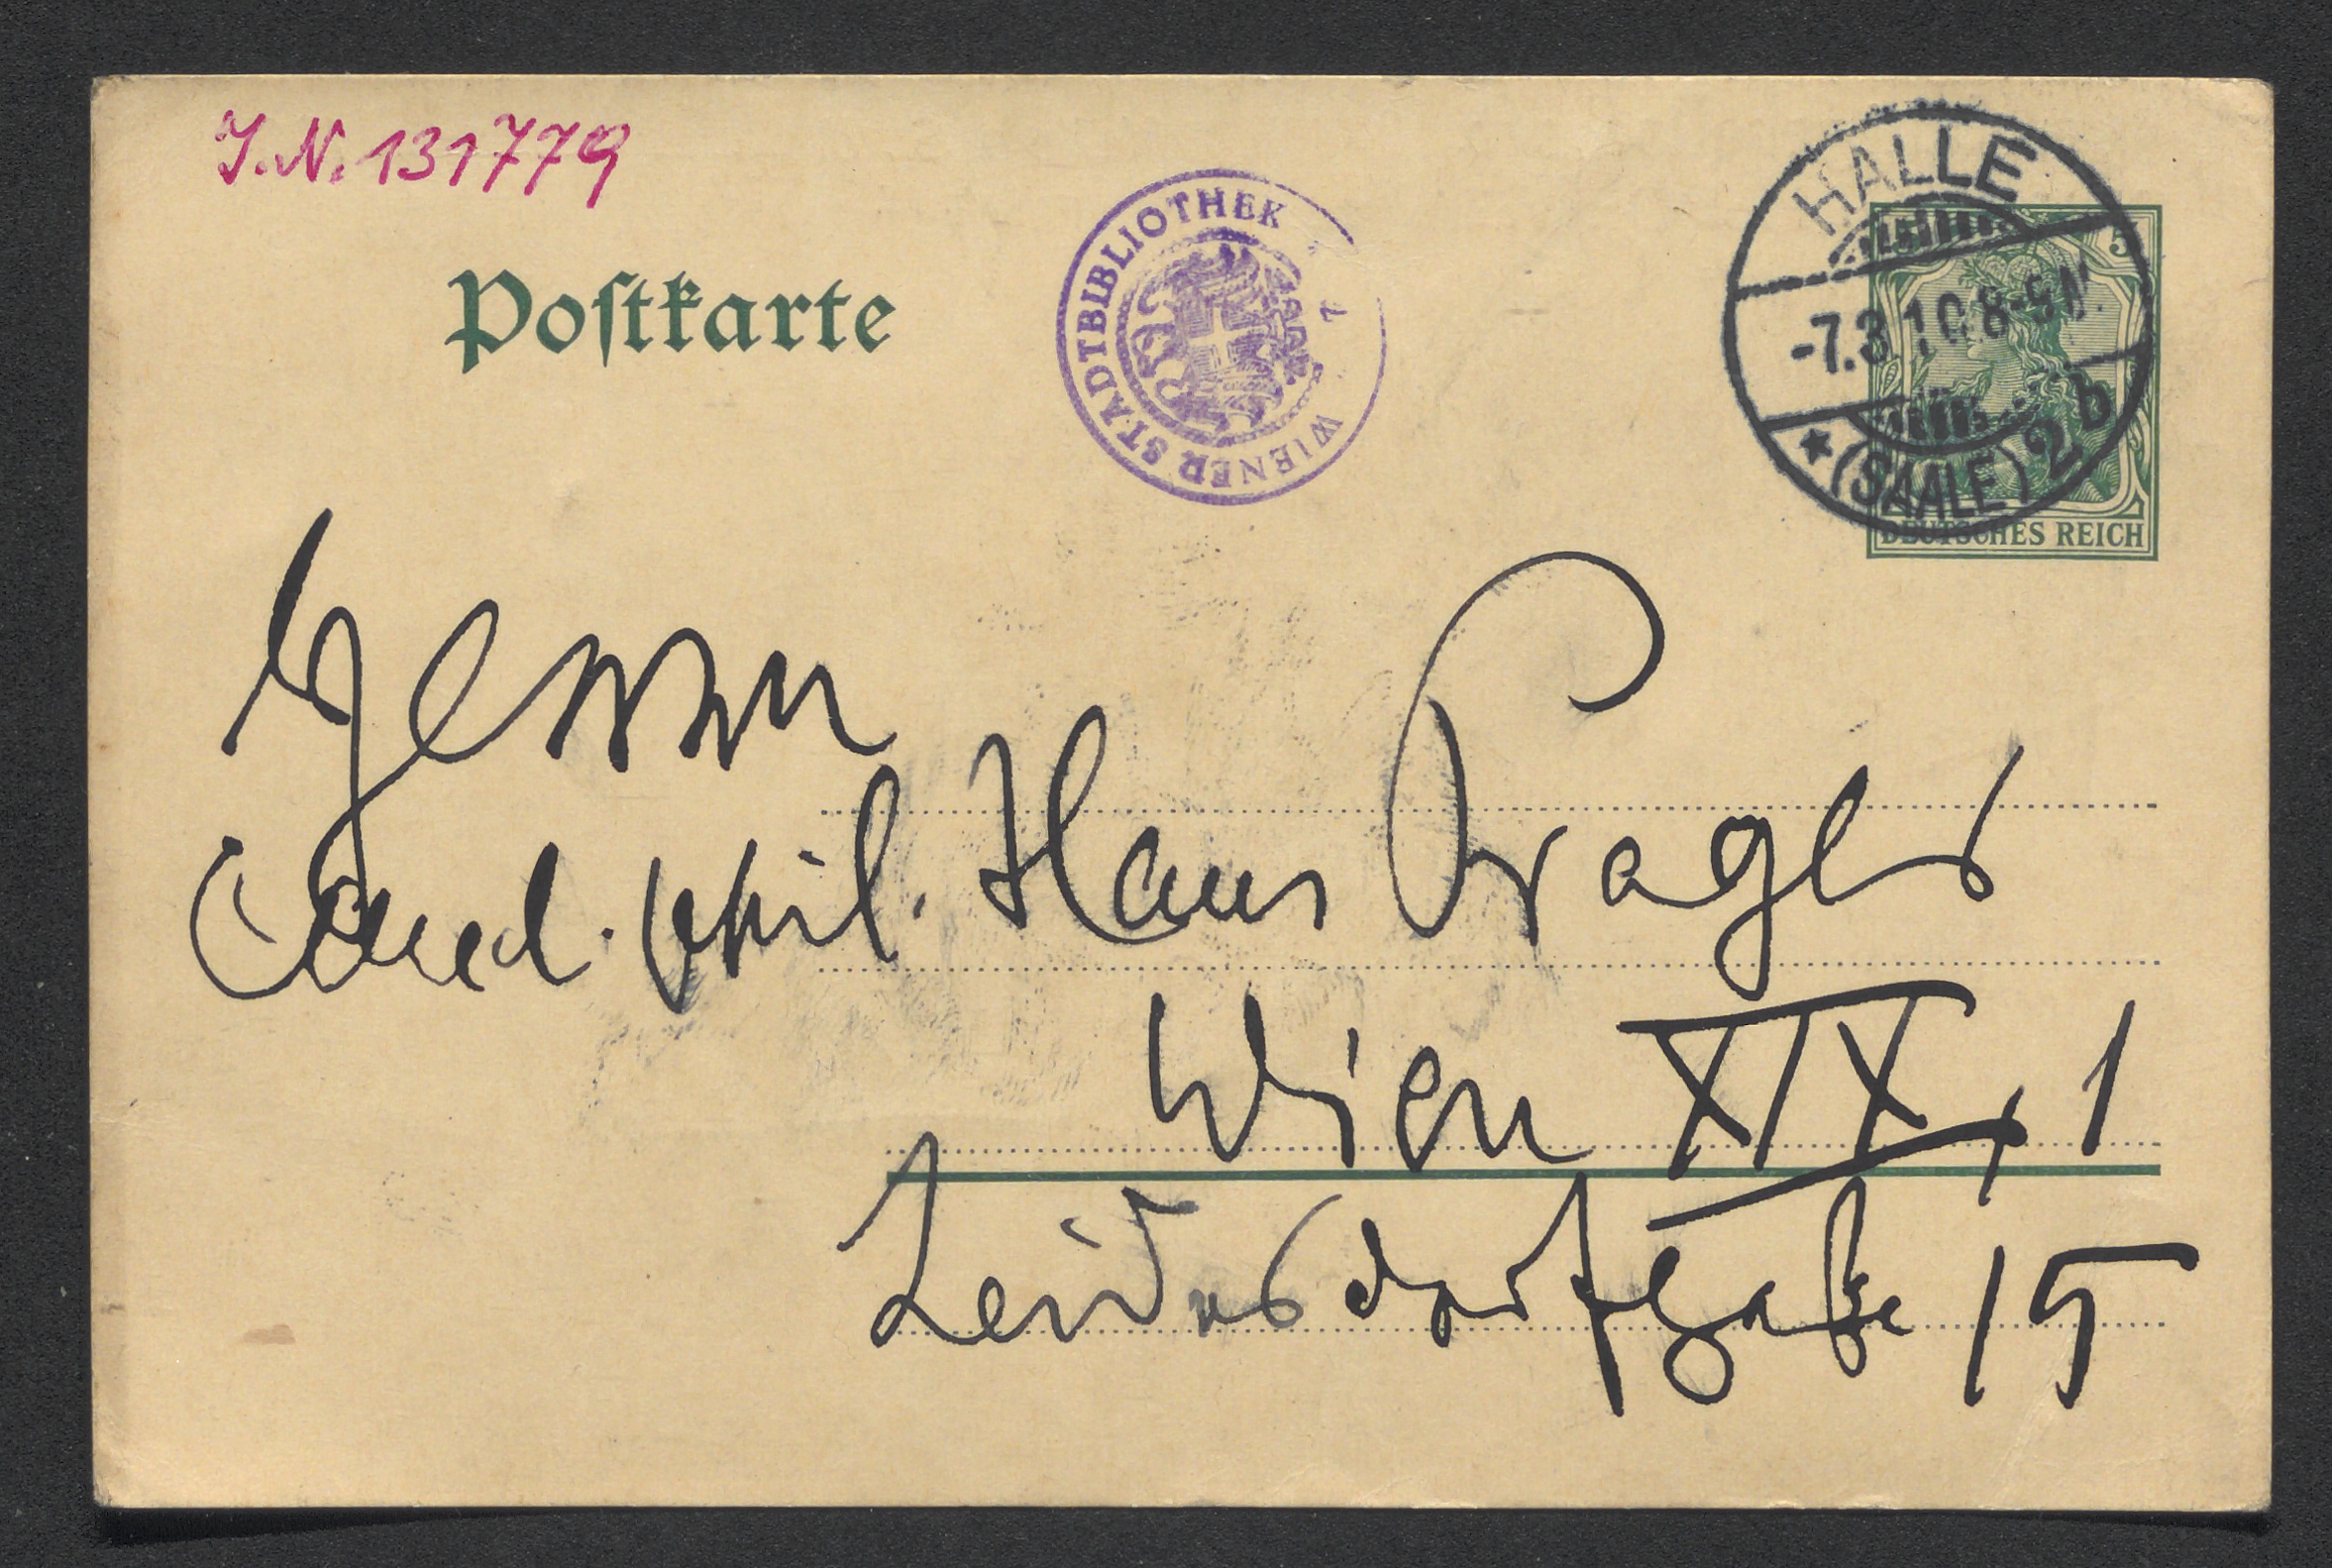 J.N. 131779
Postkarte
WIENER STADTBIBLIOTHEK
HALLE
-7.3.10.8-9N.
★(SAALE) 2b
5
DEUTSCHES REICH
Herrn
Cand. phil. Hans Prager
Wien XIX, 1
Leidesdorfgaße 15